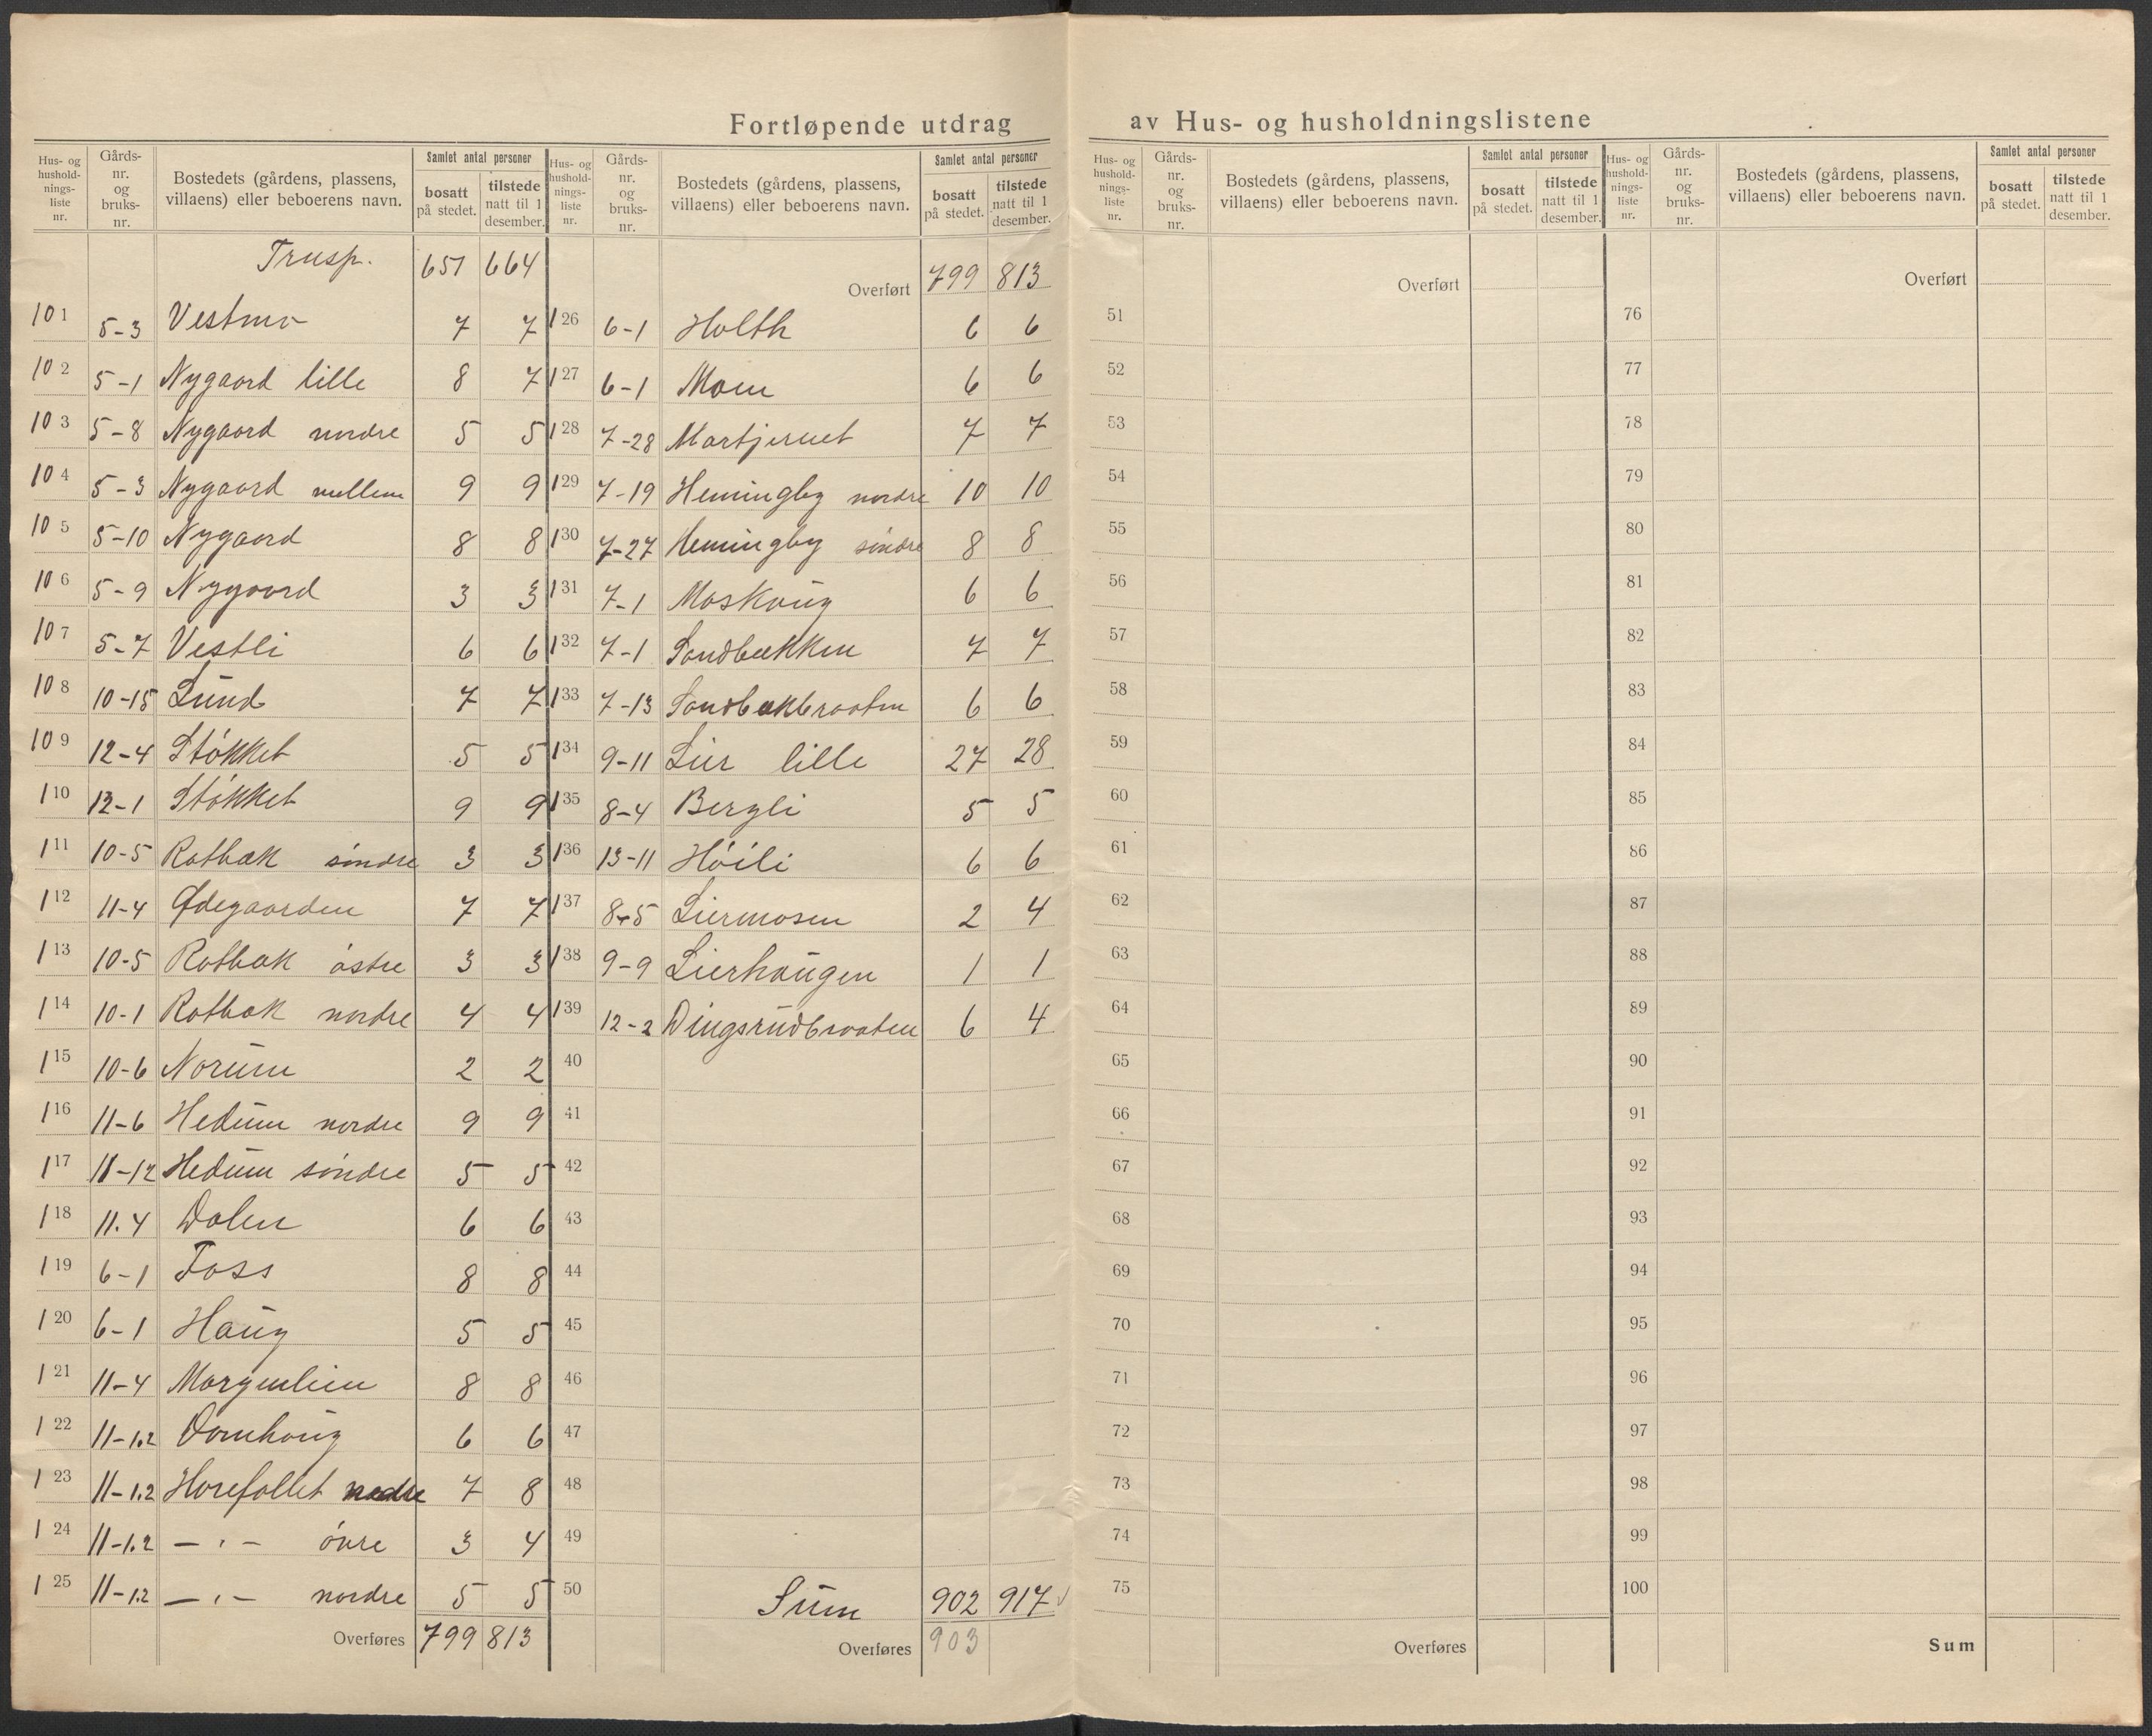 Fortløpende utdrag av Hus- og husholdningslistene
Hus- og hushold-nings-liste nr. Gårds-nr. og bruks-nr. Bostedets (gårdens, plassens, villaens) eller beboerens navn. Samlet antal personer bosatt på stedet. tilstede natt til 1 desember.
Trusp. 651 664
101 5-3 Vestmo 7 7
102 5-1 Nygaard lille 8 7
103 5-8 Nygaard nordre 5 5
104 5-3 Nygaard mellem 9 9
105 5-10 Nygaard 8 8
106 5-9 Nygaard 3 3
107 5-7 Vestli 6 6
108 10-15 Lund 7 7
109 12-4 Støkket 5 5
110 12-1 Støkket 9 9
111 10-5 Rotbæk söndre 3 3
112 11-4 Ødegaarden 7 7
113 10-5 Rotbæk östre 3 3
114 10-1 Rotbæk nordre 4 4
115 10-6 Norum 2 2
116 11-6 Hedum nordre 9 9
117 11-12 Hedum söndre 5 5
118 11.4 Dalen 6 6
119 6-1 Foss 8 8
120 6-1 Haug 5 5
121 11-4 Morgenlien 8 8
122 11-1.2 Domhaug 6 6
123 11-1.2 Horefallet nedre 7 8
124 11-1.2 — " — övre 3 4
125 11-1.2 — " — nordre 5 5
Overføres 799 813
Hus- og hushold-nings-liste nr. Gårds-nr. og bruks-nr. Bostedets (gårdens, plassens, villaens) eller beboerens navn. Samlet antal personer bosatt på stedet. tilstede natt til 1 desember.
Overført 799 813
126 6-1 Holth 6 6
127 6-1 Moen 6 6
128 7-28 Martjernet 7 7
129 7-19 Hemingby nordre 10 10
130 7-27 Hemingby söndre 8 8
131 7-1 Moskaug 6 6
132 7-1 Sandbækken 7 7
133 7-13 Sandbækbraaten 6 6
134 9-11 Lier lille 27 28
135 8-4 Bergli 5 5
136 13-11 Höili 6 6
137 8-5 Liermosen 2 4
138 9-9 Lierhaugen 1 1
139 12-2 Dingsrudbraaten 6 4
40
41
42
43
44
45
46
47
48
49
50 Sum 902 917
Overføres 903
Hus- og hushold-nings-liste nr. Gårds-nr. og bruks-nr. Bostedets (gårdens, plassens, villaens) eller beboerens navn. Samlet antal personer bosatt på stedet. tilstede natt til 1 desember.
Overført
51
52
53
54
55
56
57
58
59
60
61
62
63
64
65
66
67
68
69
70
71
72
73
74
75
Overføres
Hus- og hushold-nings-liste nr. Gårds-nr. og bruks-nr. Bostedets (gårdens, plassens, villaens) eller beboerens navn. Samlet antal personer bosatt på stedet. tilstede natt til 1 desember.
Overført
76
77
78
79
80
81
82
83
84
85
86
87
88
89
90
91
92
93
94
95
96
97
98
99
100
Sum